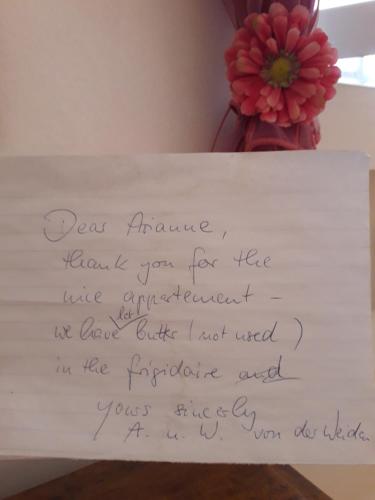 Dear Arianne,
thank you for the
nice appartement -
we have let butter (not used)
in the frigidaire and
yours sincerly
A. u. W. von der Weiden